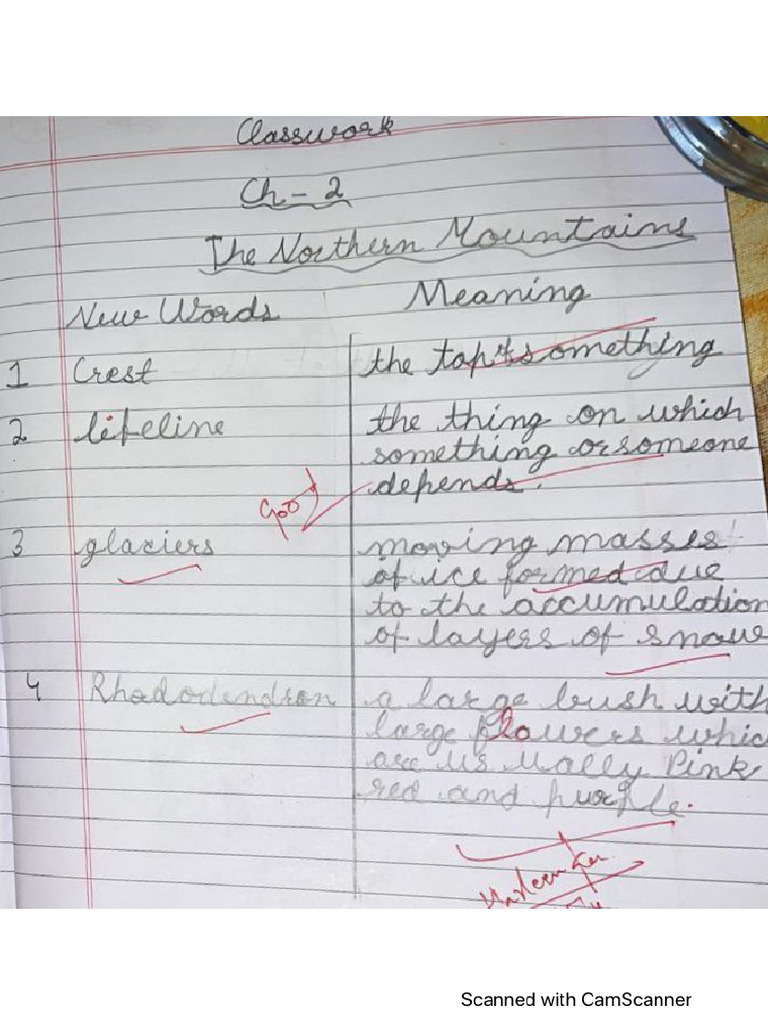 Classwork
Ch - 2
The Northern Mountains
New Words Meaning
1 Crest the top of something
2 lifeline the thing on which
something or someone
depends.
Good
3 glaciers moving masses
of ice formed due
to the accumulation
of layers of snow
4 Rhododendron a large bush with
large flowers which
are usually Pink
red and purple.
Scanned with CamScanner